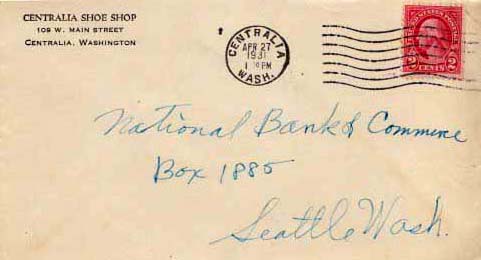 CENTRALIA SHOE SHOP
109 W. MAIN STREET
CENTRALIA, WASHINGTON
CENTRALIA
APR 27
1931
PM
WASH.
2 CENTS 2
National Bank of Commerce
Box 1885
Seattle Wash.